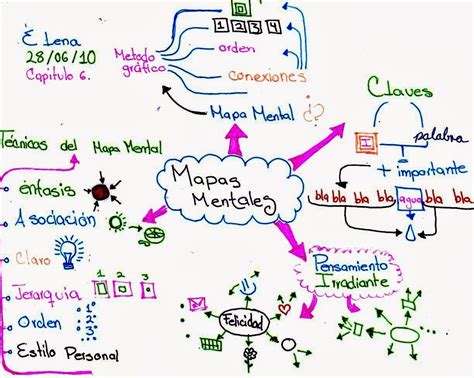 É Lena
28/06/10
Capítulo 6.
Metodo
gráfico
1 2 3 4
orden
conexiones
Mapa Mental ¿?
Claves
I
palabra
+ importante
bla bla bla bla agua bla bla
Técnicas del Mapa Mental
énfasis
Asociación
Claro
Jerarquia
1 2 3
Orden
: 1º
: 2º
: 3º
Estilo Personal
Mapas
Mentales
Pensamiento
Irradiante
Felicidad